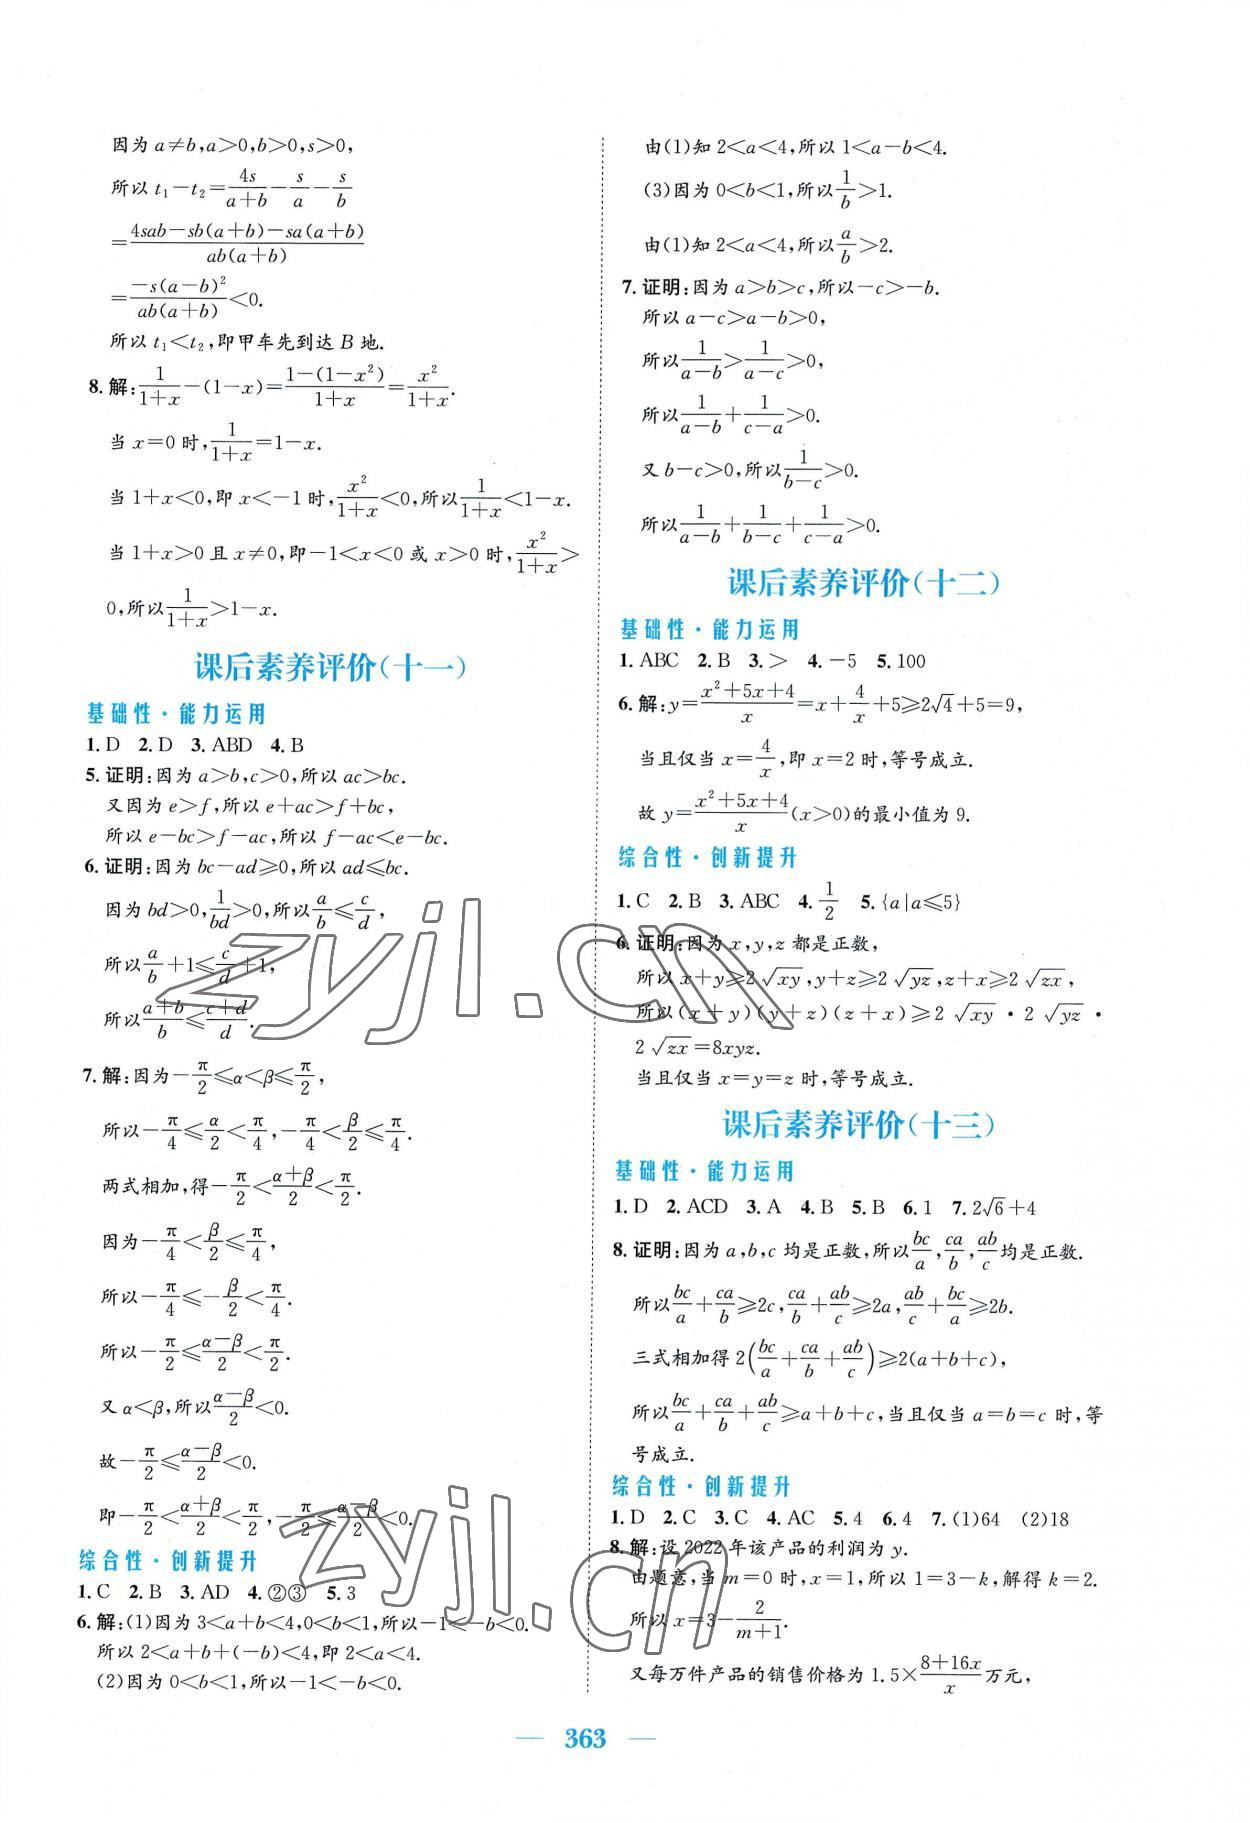 因为 a≠b,a>0,b>0,s>0,
所以 t₁-t₂=4s/(a+b)-s/a-s/b
=[4sab-sb(a+b)-sa(a+b)]/[ab(a+b)]
=-s(a-b)²/[ab(a+b)]<0.
所以 t₁<t₂,即甲车先到达 B 地.
8.解:1/(1+x)-(1-x)=[1-(1-x²)]/(1+x)=x²/(1+x).
当 x=0 时,1/(1+x)=1-x.
当 1+x<0,即 x<-1 时,x²/(1+x)<0,所以1/(1+x)<1-x.
当 1+x>0 且 x≠0,即-1<x<0 或 x>0 时,x²/(1+x)>
0,所以1/(1+x)>1-x.
课后素养评价(十一)
基础性·能力运用
1.D 2.D 3.ABD 4.B
5.证明:因为 a>b,c>0,所以 ac>bc.
又因为 e>f,所以 e+ac>f+bc,
所以 e-bc>f-ac,所以 f-ac<e-bc.
6.证明:因为 bc-ad≥0,所以 ad≤bc.
因为 bd>0,1/bd>0,所以a/b≤c/d,
所以a/b+1≤c/d+1,
所以(a+b)/b≤(c+d)/d.
7.解:因为-π/2≤α<β≤π/2,
所以-π/4≤α/2<π/4,-π/4<β/2≤π/4.
两式相加,得-π/2<(α+β)/2<π/2.
因为-π/4<β/2≤π/4,
所以-π/4≤-β/2<π/4.
所以-π/2≤(α-β)/2<π/2.
又 α<β,所以(α-β)/2<0.
故-π/2≤(α-β)/2<0.
即-π/2<(α+β)/2<π/2,-π/2≤(α-β)/2<0.
综合性·创新提升
1.C 2.B 3.AD 4.②③ 5.3
6.解:(1)因为 3<a+b<4,0<b<1,所以-1<-b<0.
所以 2<a+b+(-b)<4,即 2<a<4.
(2)因为 0<b<1,所以-1<-b<0.
由(1)知 2<a<4,所以 1<a-b<4.
(3)因为 0<b<1,所以1/b>1.
由(1)知 2<a<4,所以a/b>2.
7.证明:因为 a>b>c,所以-c>-b.
所以 a-c>a-b>0,
所以1/(a-b)>1/(a-c)>0,
所以1/(a-b)+1/(c-a)>0.
又 b-c>0,所以1/(b-c)>0.
所以1/(a-b)+1/(b-c)+1/(c-a)>0.
课后素养评价(十二)
基础性·能力运用
1.ABC 2.B 3.> 4.-5 5.100
6.解:y=(x²+5x+4)/x=x+4/x+5≥2√4+5=9,
当且仅当 x=4/x,即 x=2 时,等号成立.
故 y=(x²+5x+4)/x(x>0)的最小值为 9.
综合性·创新提升
1.C 2.B 3.ABC 4.1/2 5.{a|a≤5}
6.证明:因为 x,y,z 都是正数,
所以 x+y≥2√xy,y+z≥2√yz,z+x≥2√zx,
所以(x+y)(y+z)(z+x)≥2√xy·2√yz·
2√zx=8xyz.
当且仅当 x=y=z 时,等号成立.
课后素养评价(十三)
基础性·能力运用
1.D 2.ACD 3.A 4.B 5.B 6.1 7.2√6+4
8.证明:因为 a,b,c 均是正数,所以bc/a,ca/b,ab/c均是正数.
所以bc/a+ca/b≥2c,ca/b+ab/c≥2a,ab/c+bc/a≥2b.
三式相加得 2(bc/a+ca/b+ab/c)≥2(a+b+c),
所以bc/a+ca/b+ab/c≥a+b+c,当且仅当 a=b=c 时,等
号成立.
综合性·创新提升
1.D 2.C 3.C 4.AC 5.4 6.4 7.(1)64 (2)18
8.解:设 2022 年该产品的利润为 y.
由题意,当 m=0 时,x=1,所以 1=3-k,解得 k=2.
所以 x=3-2/(m+1).
又每万件产品的销售价格为 1.5×(8+16x)/x万元,
— 363 —
zyjl.cn
zyjl.cn